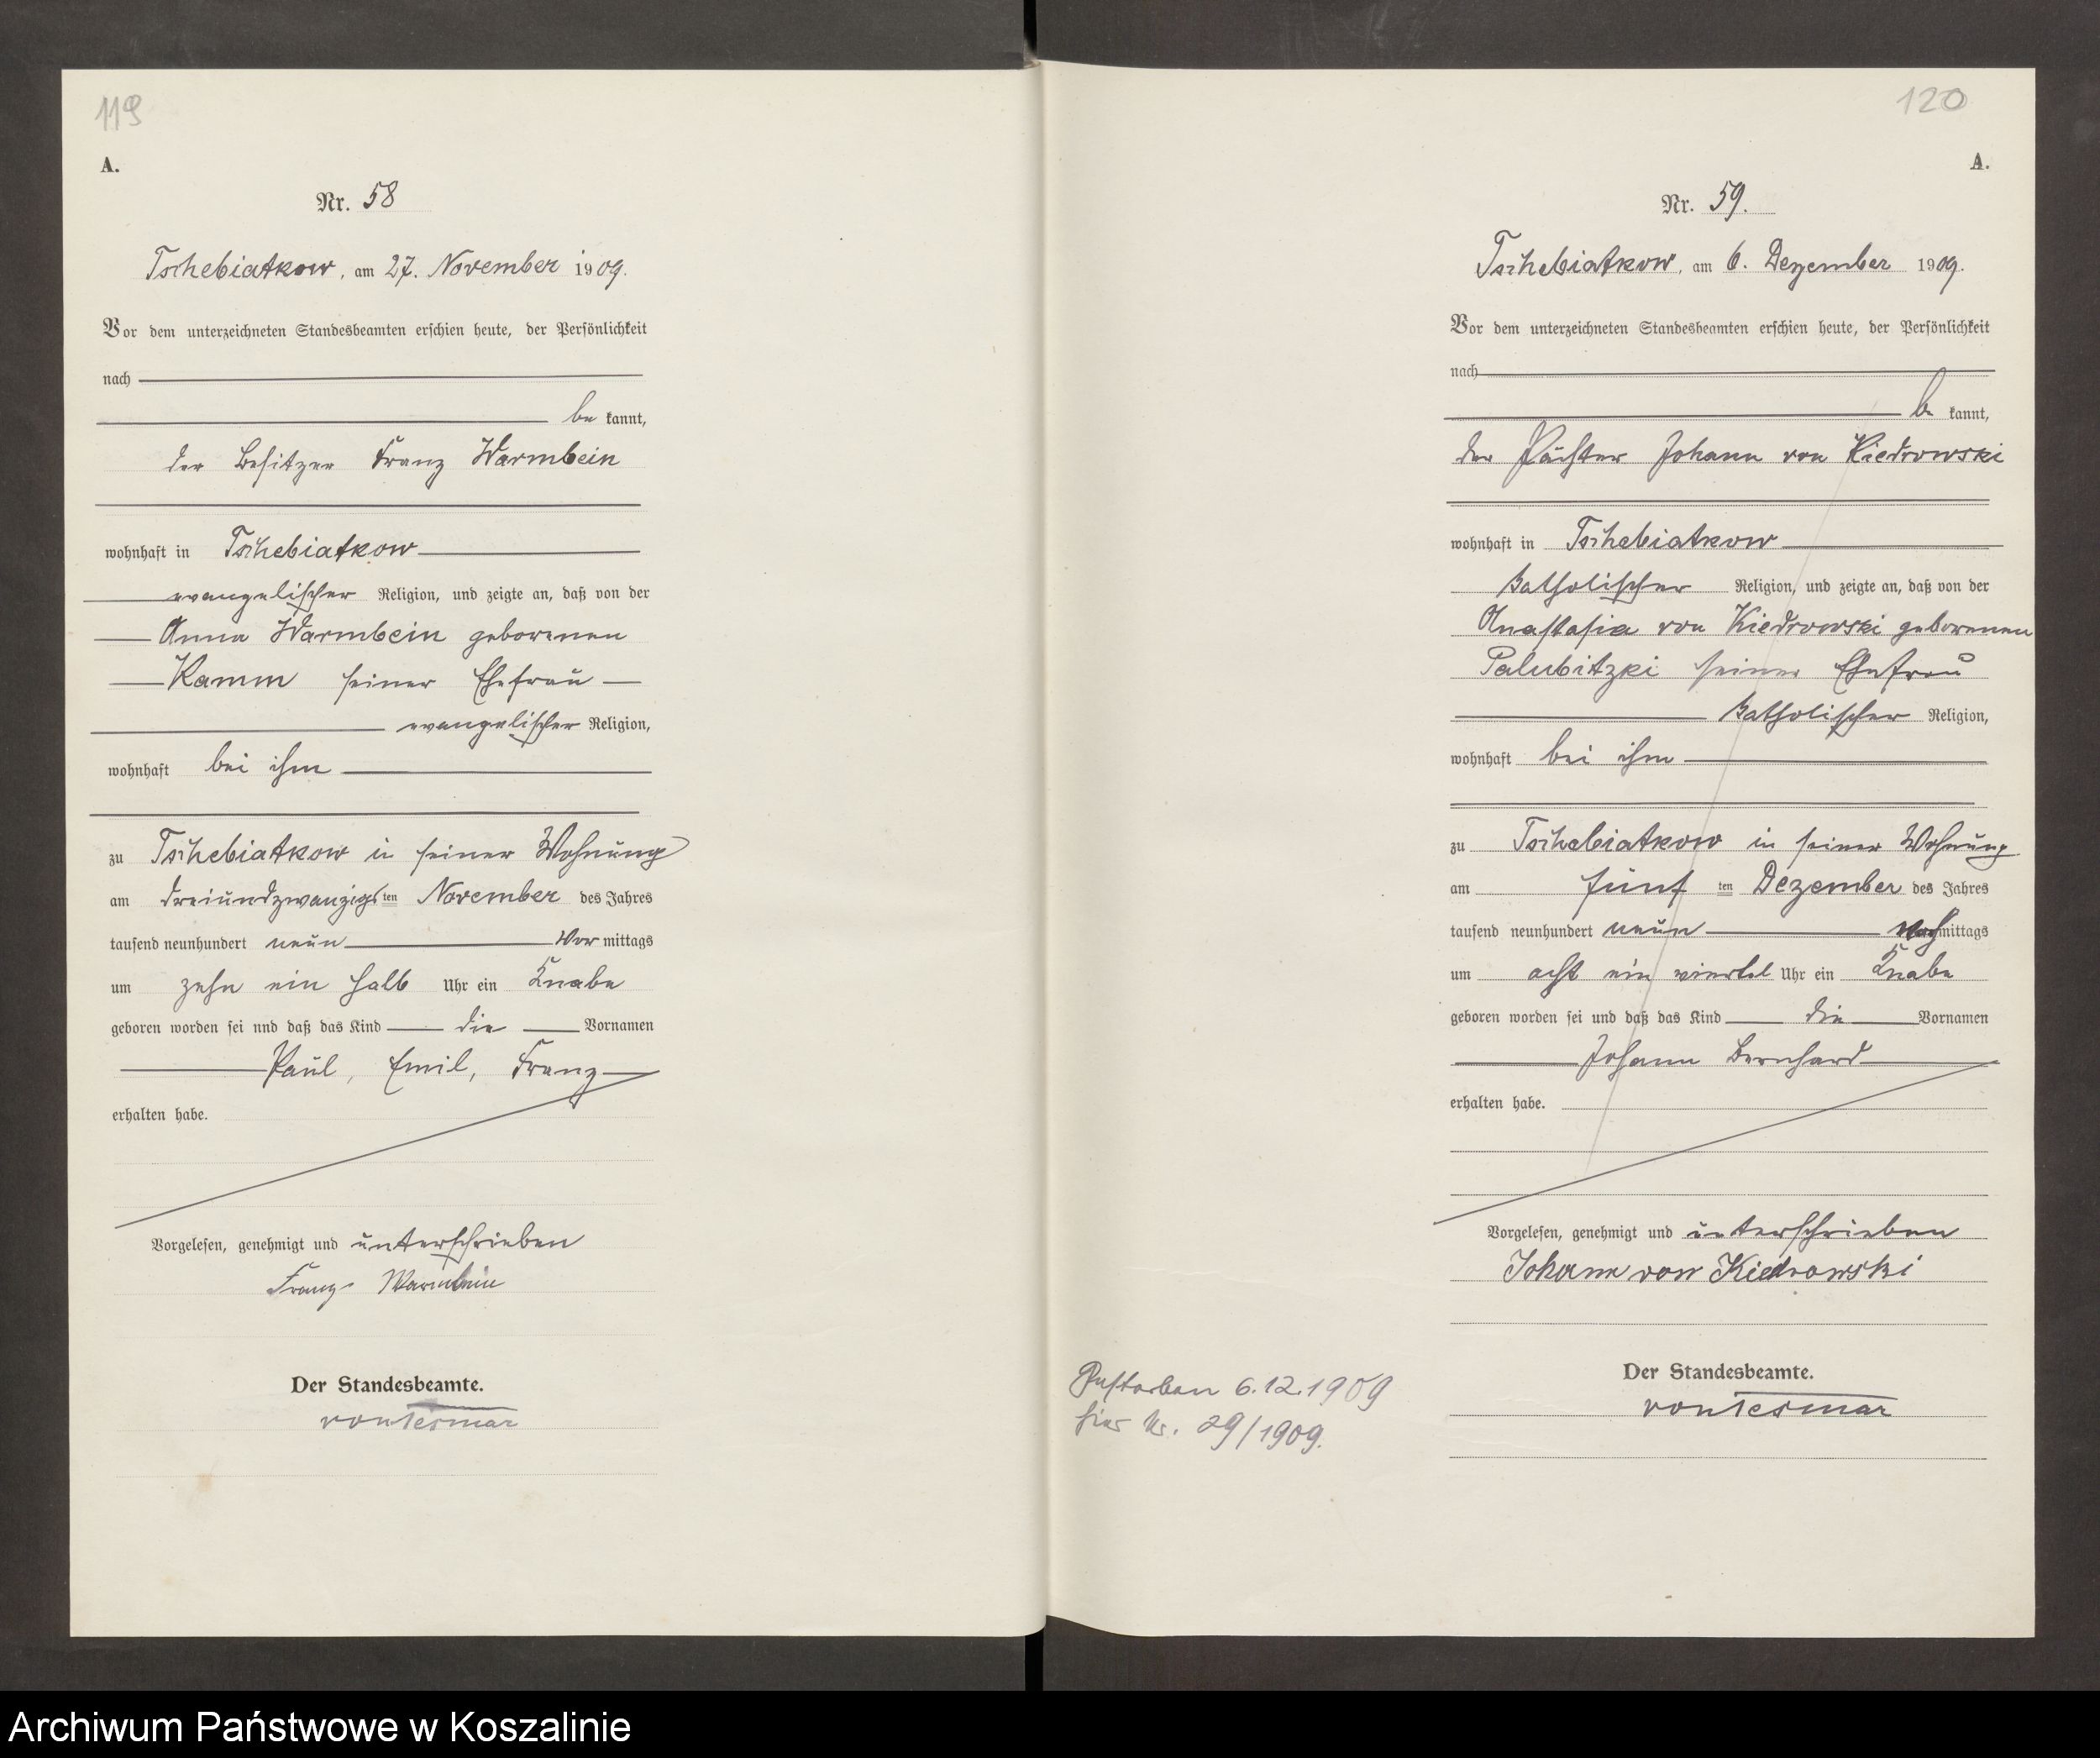 119
A.
Nr. 58
Tschebiatkow, am 27. November 1909.
Vor dem unterzeichneten Standesbeamten erschien heute, der Persönlichkeit
nach
be kannt,
der Besitzer Franz Warmbein
wohnhaft in Tschebiatkow
evangelischer Religion, und zeigte an, daß von der
Anna Warmbein geborenen
Kamm seiner Ehefrau
evangelischer Religion,
wohnhaft bei ihm
zu Tschebiatkow in seiner Wohnung
am dreiundzwanzigsten November des Jahres
tausend neunhundert neun Vor mittags
um zehn ein halb Uhr ein Knabe
geboren worden sei nnd daß das Kind die Vornamen
Paul, Emil, Franz
erhalten habe.
Vorgelesen, genehmigt und unterschrieben
Franz Warmbein
Der Standesbeamte.
von Tesmar
120
A.
Nr. 59.
Tschebiatkow, am 6. Dezember 1909.
Vor dem unterzeichneten Standesbeamten erschien heute, der Persönlichkeit
nach
be kannt,
der Pächter Johann von Kiedrowski
wohnhaft in Tschebiatkow
katholischer Religion, und zeigte an, daß von der
Anastasia von Kiedrowski geborenen
Palubitzki seiner Ehefrau
katholischer Religion,
wohnhaft bei ihm
zu Tschebiatkow in seiner Wohnung
am fünf ten Dezember des Jahres
tausend neunhundert neun Nachmittags
um acht ein viertel Uhr ein Knabe
geboren worden sei und daß das Kind die Vornamen
Johann Bernhard
erhalten habe.
Vorgelesen, genehmigt und unterschrieben
Johann von Kiedrowski
Der Standesbeamte.
von Tesmar
Gestorben 6.12.1909
hier Nr. 29/1909.
Archiwum Państwowe w Koszalinie